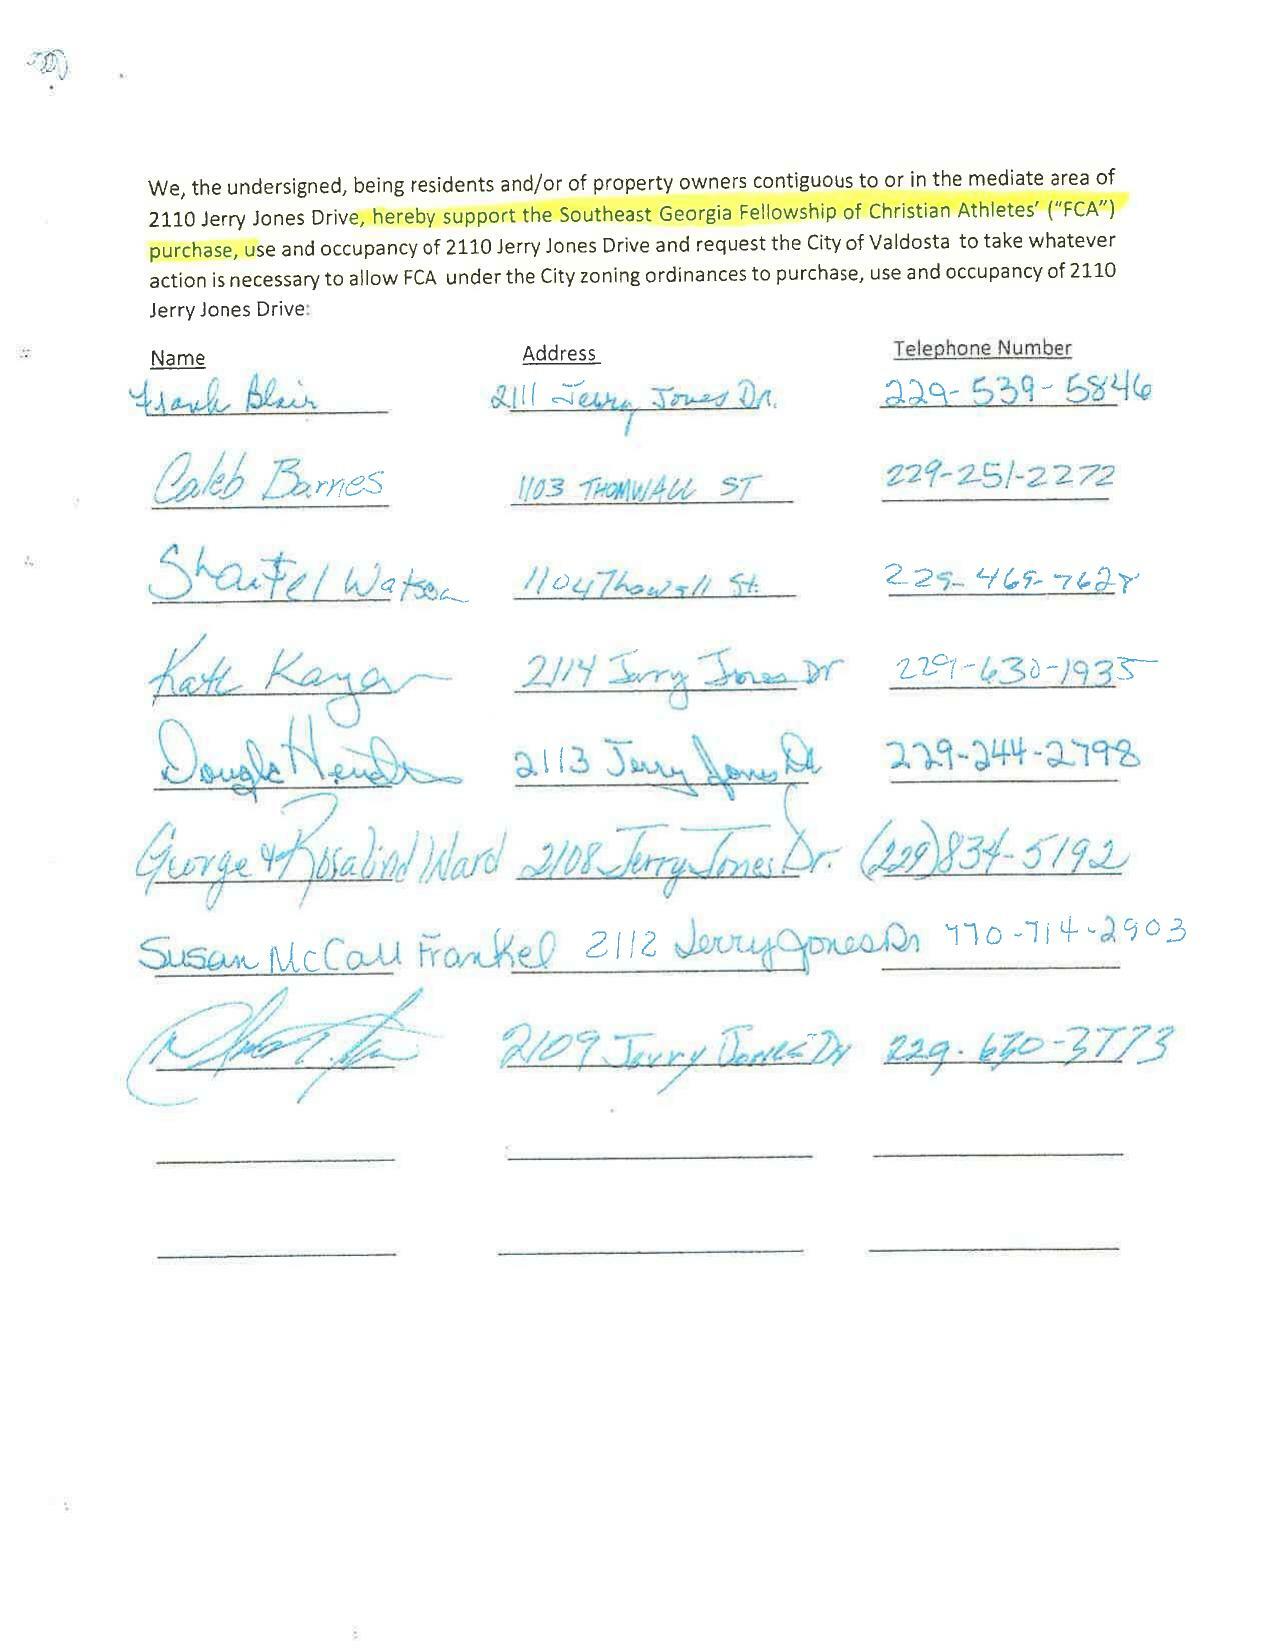 We, the undersigned, being residents and/or of property owners contiguous to or in the mediate area of
2110 Jerry Jones Drive, hereby support the Southeast Georgia Fellowship of Christian Athletes' ("FCA")
purchase, use and occupancy of 2110 Jerry Jones Drive and request the City of Valdosta to take whatever
action is necessary to allow FCA under the City zoning ordinances to purchase, use and occupancy of 2110
Jerry Jones Drive:
Name Address Telephone Number
Frank Blair 2111 Jerry Jones Dr. 229-539-5846
Caleb Barnes 1103 THOMWALL ST 229-251-2272
Shantel Watson 1104 Thowall St. 229-469-7628
Kate 2114 Jerry Jones Dr 229-630-1935
2113 Jerry Jones Dr 229-244-2798
George & Rosalind Ward 2108 Jerry Jones Dr. (229)834-5192
Susan McCall Frankel 2112 Jerry Jones Dr 770-714-2903
2109 Jerry Jones Dr 229-630-3773